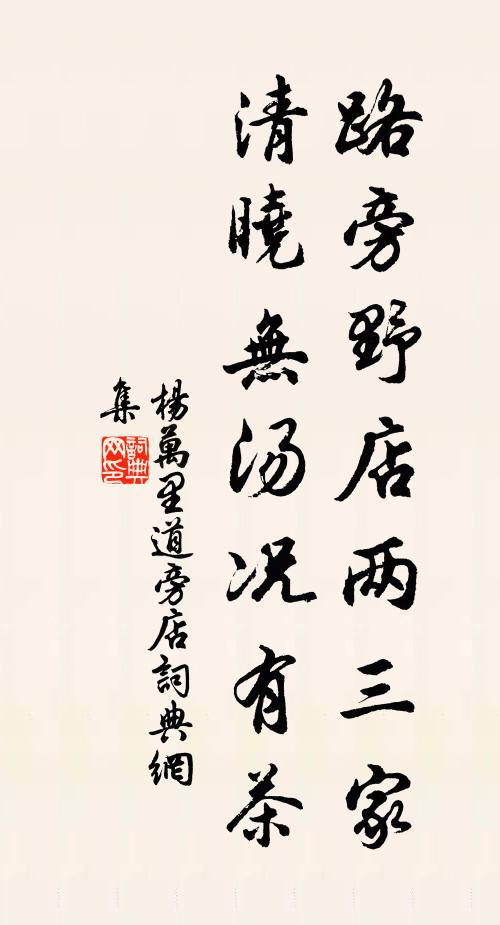 路旁野店两三家
清曉無湯况有茶
楊萬里道旁店詞典網
集
詞典
网印